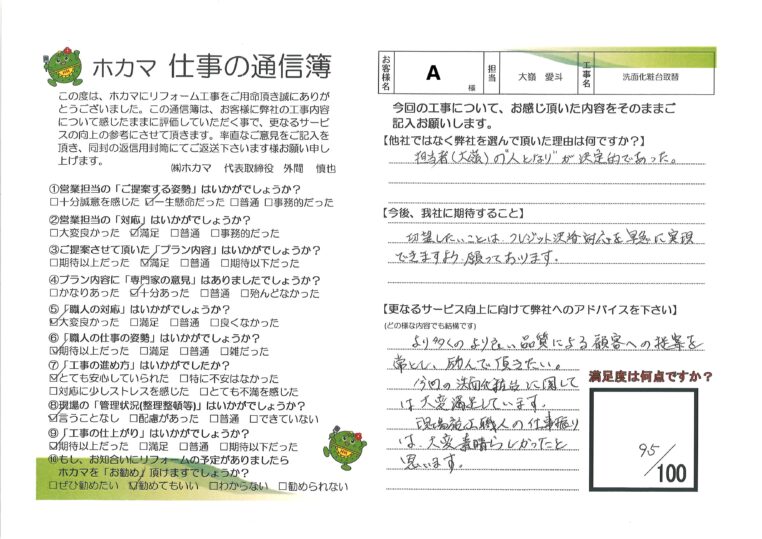 ホカマ 仕事の通信簿
この度は、ホカマにリフォーム工事をご用命頂き誠にありが
とうございました。この通信簿は、お客様に弊社の工事内容
について感じたままに評価していただく事で、更なるサービ
スの向上の参考にさせて頂きます。率直なご意見をご記入を
頂き、同封の返信用封筒にてご返送下さいます様お願い申し
上げます。
㈱ホカマ 代表取締役 外間 慎也
①営業担当の「ご提案する姿勢」はいかがでしょうか?
□十分誠意を感じた ☑一生懸命だった □普通 □事務的だった
②営業担当の「対応」はいかがでしょうか?
□大変良かった ☑満足 □普通 □事務的だった
③ご提案させて頂いた「プラン内容」はいかがでしょうか?
□期待以上だった ☑満足 □普通 □期待以下だった
④プラン内容に「専門家の意見」はありましたでしょうか?
□かなりあった ☑十分あった □普通 □殆んどなかった
⑤「職人の対応」はいかがでしょうか?
☑大変良かった □満足 □普通 □良くなかった
⑥「職人の仕事の姿勢」はいかがでしょうか?
☑期待以上だった □満足 □普通 □雑だった
⑦「工事の進め方」はいかがでしたか?
☑とても安心していられた □特に不安はなかった
□対応に少しストレスを感じた □とても不満を感じた
⑧現場の「管理状況(整理整頓等)」はいかがでしょうか?
☑言うことなし □配慮があった □普通 □できていない
⑨「工事の仕上がり」はいかがでしょうか?
☑期待以上だった □満足 □普通 □期待以下だった
⑩もし、お知合いにリフォームの予定がありましたら
ホカマを「お勧め」頂けますでしょうか?
□ぜひ勧めたい ☑勧めてもいい □わからない □勧められない
お客様名 A 様 担当 大嶺 愛斗 工事名 洗面化粧台取替
今回の工事について、お感じ頂いた内容をそのままご
記入お願いします。
【他社ではなく弊社を選んで頂いた理由は何ですか?】
担当者(大嶺)の"人となり"が決定的であった。
【今後、我社に期待すること】
切望したいことは、クレジット決済対応を早急に実現
できますよう願っております。
【更なるサービス向上に向けて弊社へのアドバイスを下さい】
(どの様な内容でも結構です)
より多くのより良い品質による顧客への提案を
常とし、励んで頂きたい。
今回の洗面化粧台に関して
は大変満足しています。
現場施工職人の仕事振り
は、大変素晴らしかったと
思います。
満足度は何点ですか?
95/100